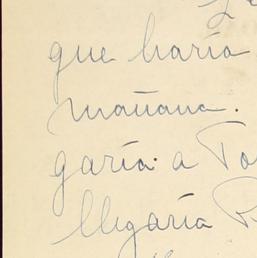 que haría
mañana.
garía a
llegaría